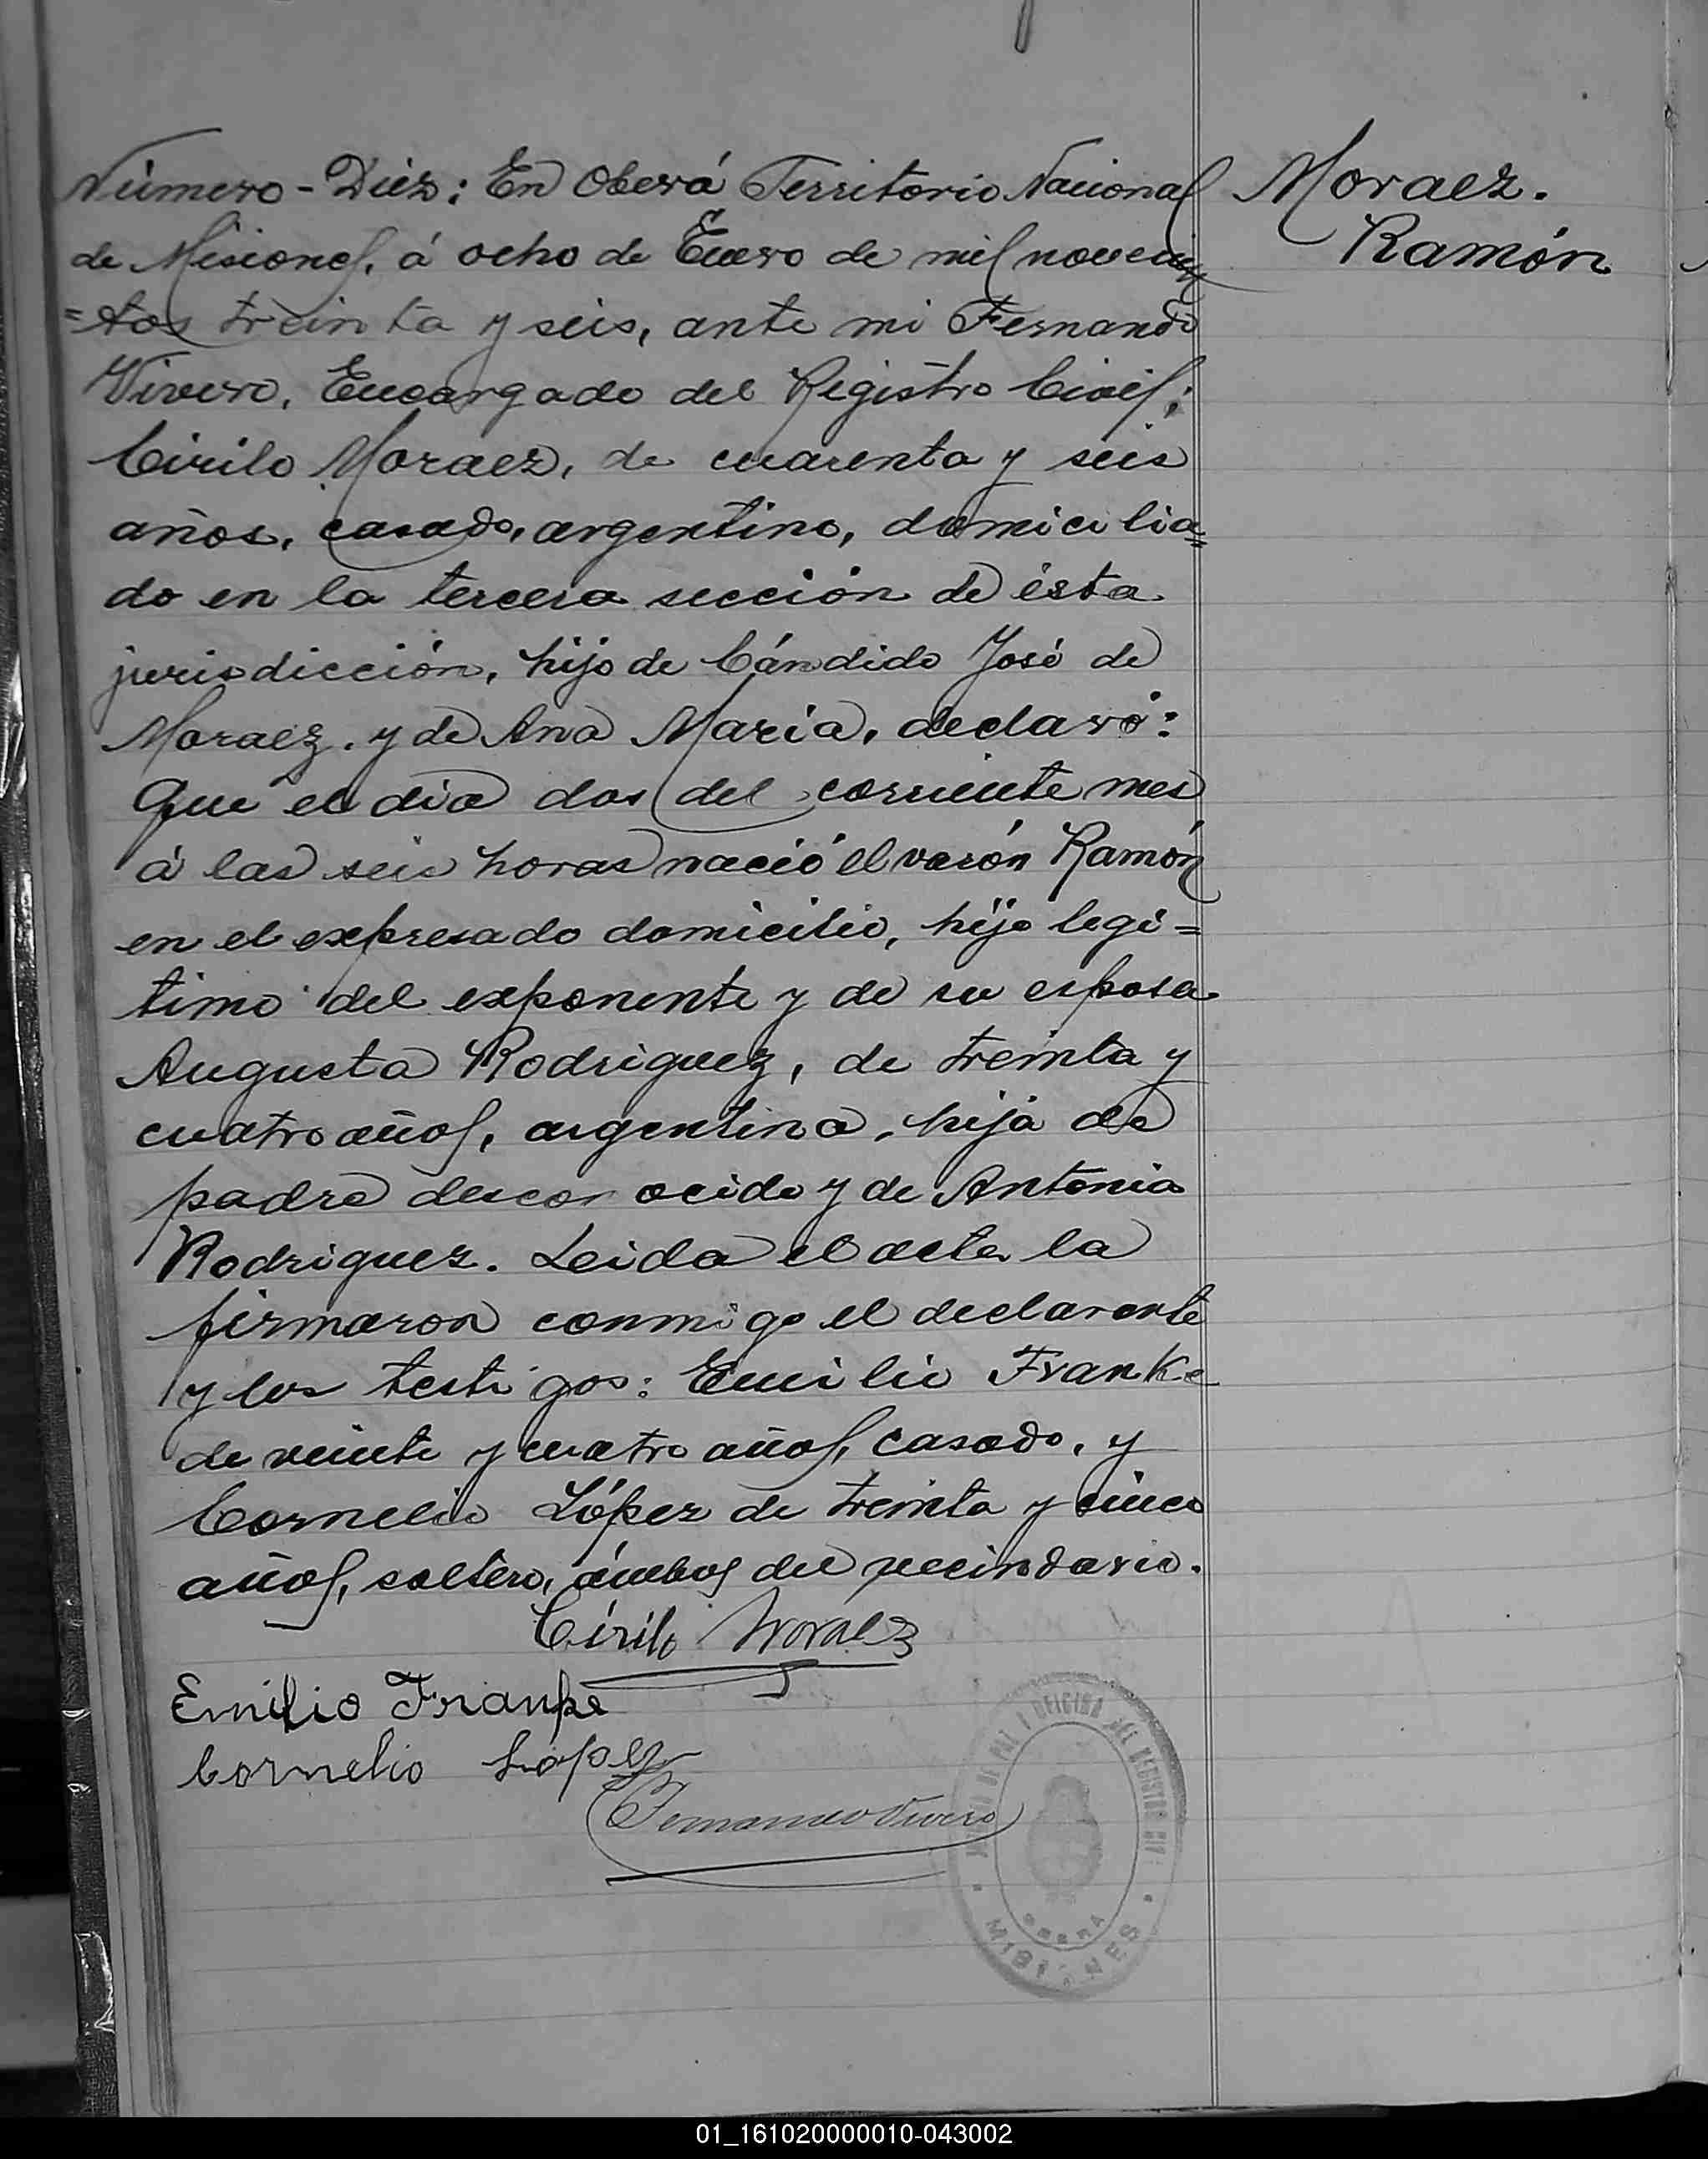 Número - Diez: En Oberá Territorio Nacional
de Misiones, á ocho de Enero de mil novecien
=tos treinta y seis, ante mi Fernando
Vivero, Encargado del Registro Civil;
Cirilo Moraez, de cuarenta y seis
años, casado, argentino, domicilia=
do en la tercera sección de ésta
jurisdicción, hijo de Cándido José de
Moraez. y de Ana María, declaró:
Que el día dos del corriente mes
á las seis horas nació el varón Ramón
en el expresado domicilio, hijo legi=
timo del exponente y de su esposa
Augusta Rodriguez, de treinta y
cuatro años, argentina, hija de
padre desconocido y de Antonia
Rodriguez. Leida el acta la
firmaron conmigo el declarante
y los testigos: Emilio Franke
de veinte y cuatro años, casado, y
Cornelio López de treinta y cinco
años, soltero, ámbos del vecindario.
Moraez.
Ramón
Círilo Moraez
Emilio Franke
Cornelio López
Fernando Vivero
DE PAZ Y OFICINA DEL REGISTRO CIV
OBERA
MISIONES
01_161020000010-043002